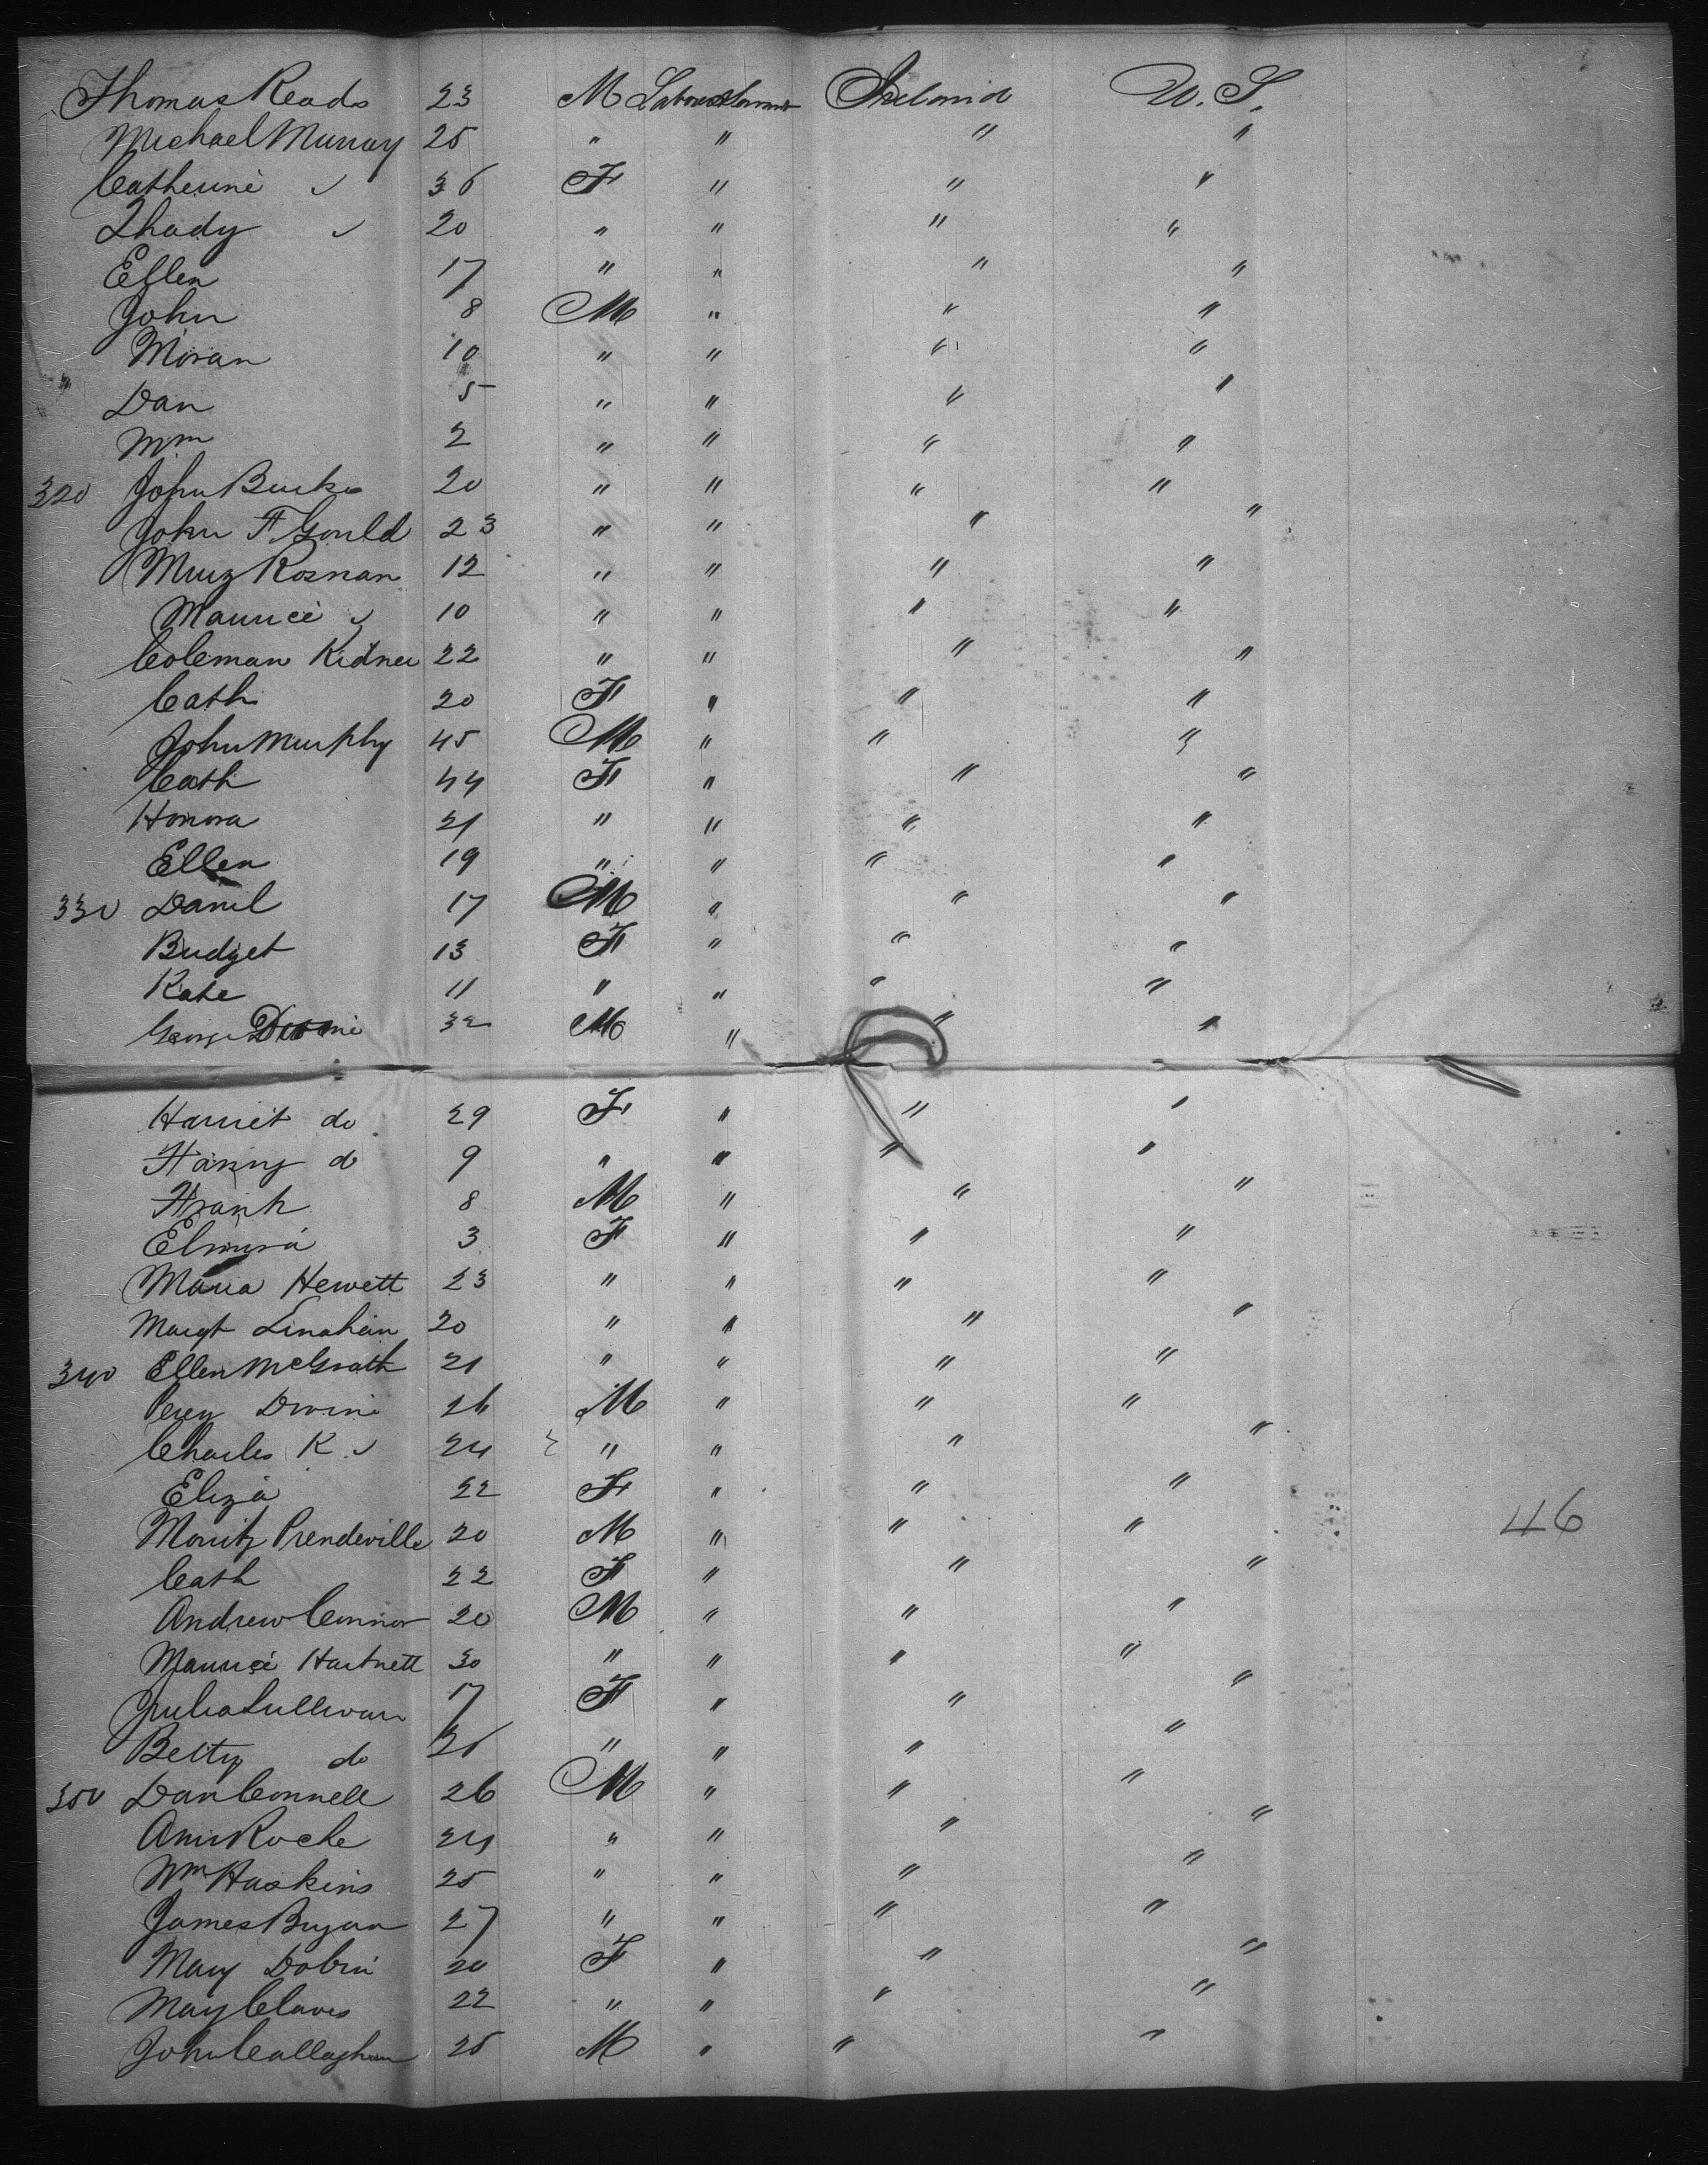 Thomas Reads 23 M Ireland U. S.
Michael Murray 25 " " " "
Catherine " 36 F " " "
Thady " 20 " " " "
Ellen 17 " " " "
John 8 M " " "
Moran 10 " " " "
Dan 5 " " " "
Wm 2 " " " "
320 John Burke 20 " " " "
John F Gould 23 " " " "
Rosnan 12 " " " "
Maurice " 10 " " " "
Coleman Kidney 22 " " " "
Cath 20 F " " "
John Murphy 45 M " " "
Cath 44 F " " "
Honora 21 " " " "
Ellen 19 " " " "
330 Daniel 17 M " " "
Bridget 13 F " " "
Kate 11 " " " "
George 32 M " " "
Harriet do 29 F " " "
Fanny do 9 " " " "
Frank 8 M " " "
Elmira 3 F " " "
Maria Hewett 23 " " " "
Margt Linahan 20 " " " "
340 Ellen McGrath 21 " " " "
Percy 26 M " " "
Charles K " 24 " " " "
Eliza 22 F " " "
Moritz Prendeville 20 M " " "
46
Cath 22 F " " "
Andrew Connor 20 M " " "
Maurice Hartnett 30 " " " "
Julia Sullivan 17 F " " "
Betty do 26 " " " "
350 Dan Connell 26 M " " "
Roche 24 " " " "
Wm Haskins 25 " " " "
James Bryan 27 " " " "
Mary Dobin 20 F " " "
Mary Claves 22 " " " "
John Callaghan 25 M " " "